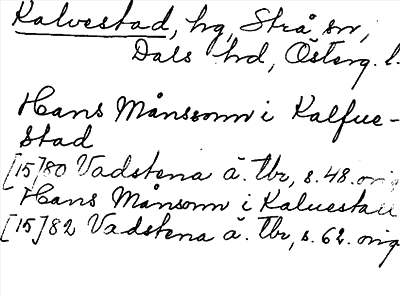 Kalvestad, hg, Strå sn,
Dals hd, Österg. l.
Hans Månsson i Kalfue-
stad
[15]80 Vadstena ä. tbr, s. 48. orig
Hans Månson i Kaluestad
[15]82 Vadstena ä. tbr, s. 62. orig